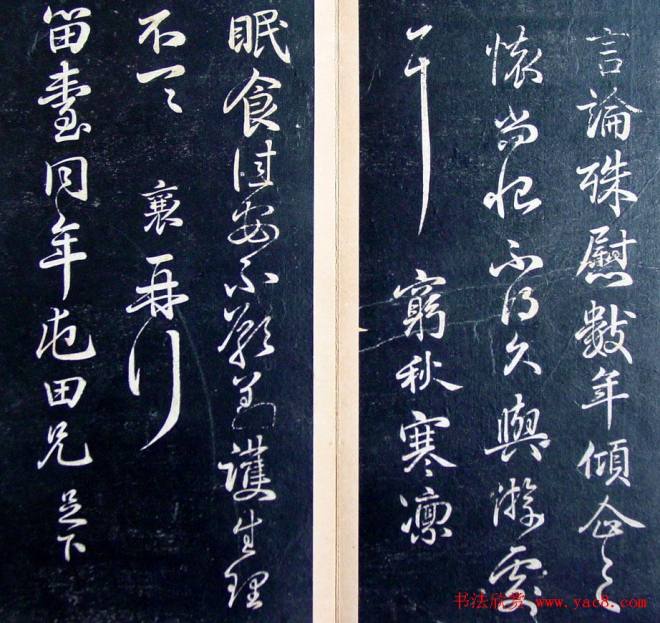 言論殊慰數年傾企之
懷尚恨不得久與游處
耳 窮秋寒凜
眠食佳安不願善護生理
不一一 襄再拜
留臺同年屯田兄足下
书法欣赏 www.yac8.com